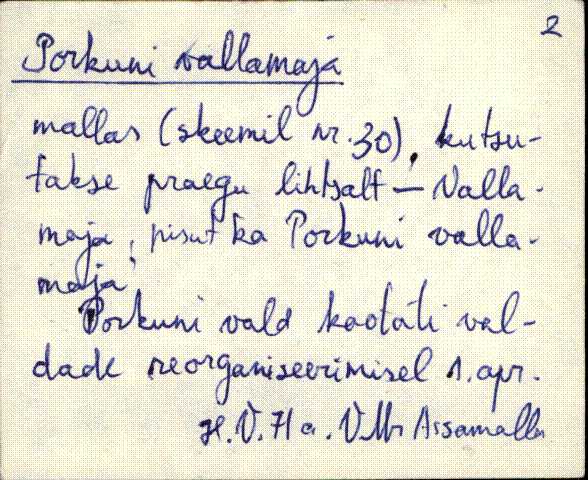 2
Porkuni vallamaja
mallas (skeemil nr. 30), kutsu-
takse praegu lihtsalt – Valla-
maja, pisut ka Porkuni valla-
maja.
Porkuni vald kaotati val-
dade reorganiseerimisel 1. apr.
H. V. Assamalla